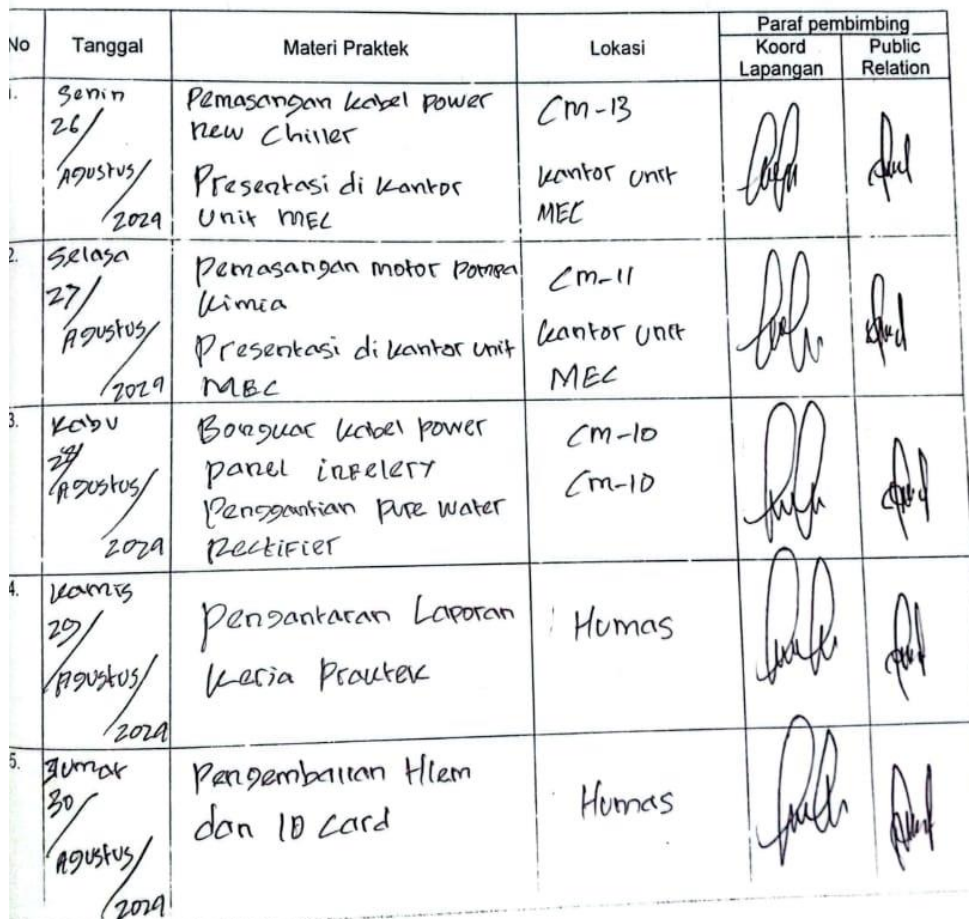 No Tanggal Materi Praktek Lokasi Paraf pembimbing
Koord Lapangan Public Relation
1. Senin 26/ Agustus/ 2024
Pemasangan kabel power
new Chiller
Presentasi di kantor
Unit MEC
CM-13
kantor unit
MEC
2. Selasa 27/ Agustus/ 2024
Pemasangan motor Pompa
kimia
Presentasi di kantor unit
MEC
CM-11
kantor unit
MEC
3. Rabu 28/ Agustus/ 2024
Bongkar kabel power
panel
Penggantian Pure Water
Rectifier
CM-10
CM-10
4. Kamis 29/ Agustus/ 2024
Pengantaran Laporan
Kerja Praktek
Humas
5. Jumat 30/ Agustus/ 2024
Pengembalian Hlem
dan ID Card
Humas